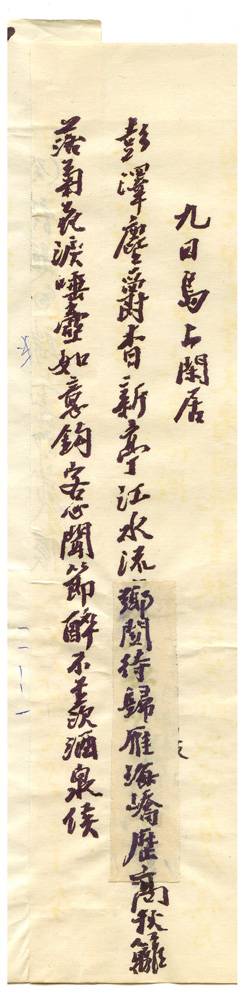 九日島上閑居
彭澤塵爵杳新亭江水流鄉關待歸雁海嶠歷高秋籬
落菊花淚唾壺如意鉤客心聞節醉不羨酒泉侯